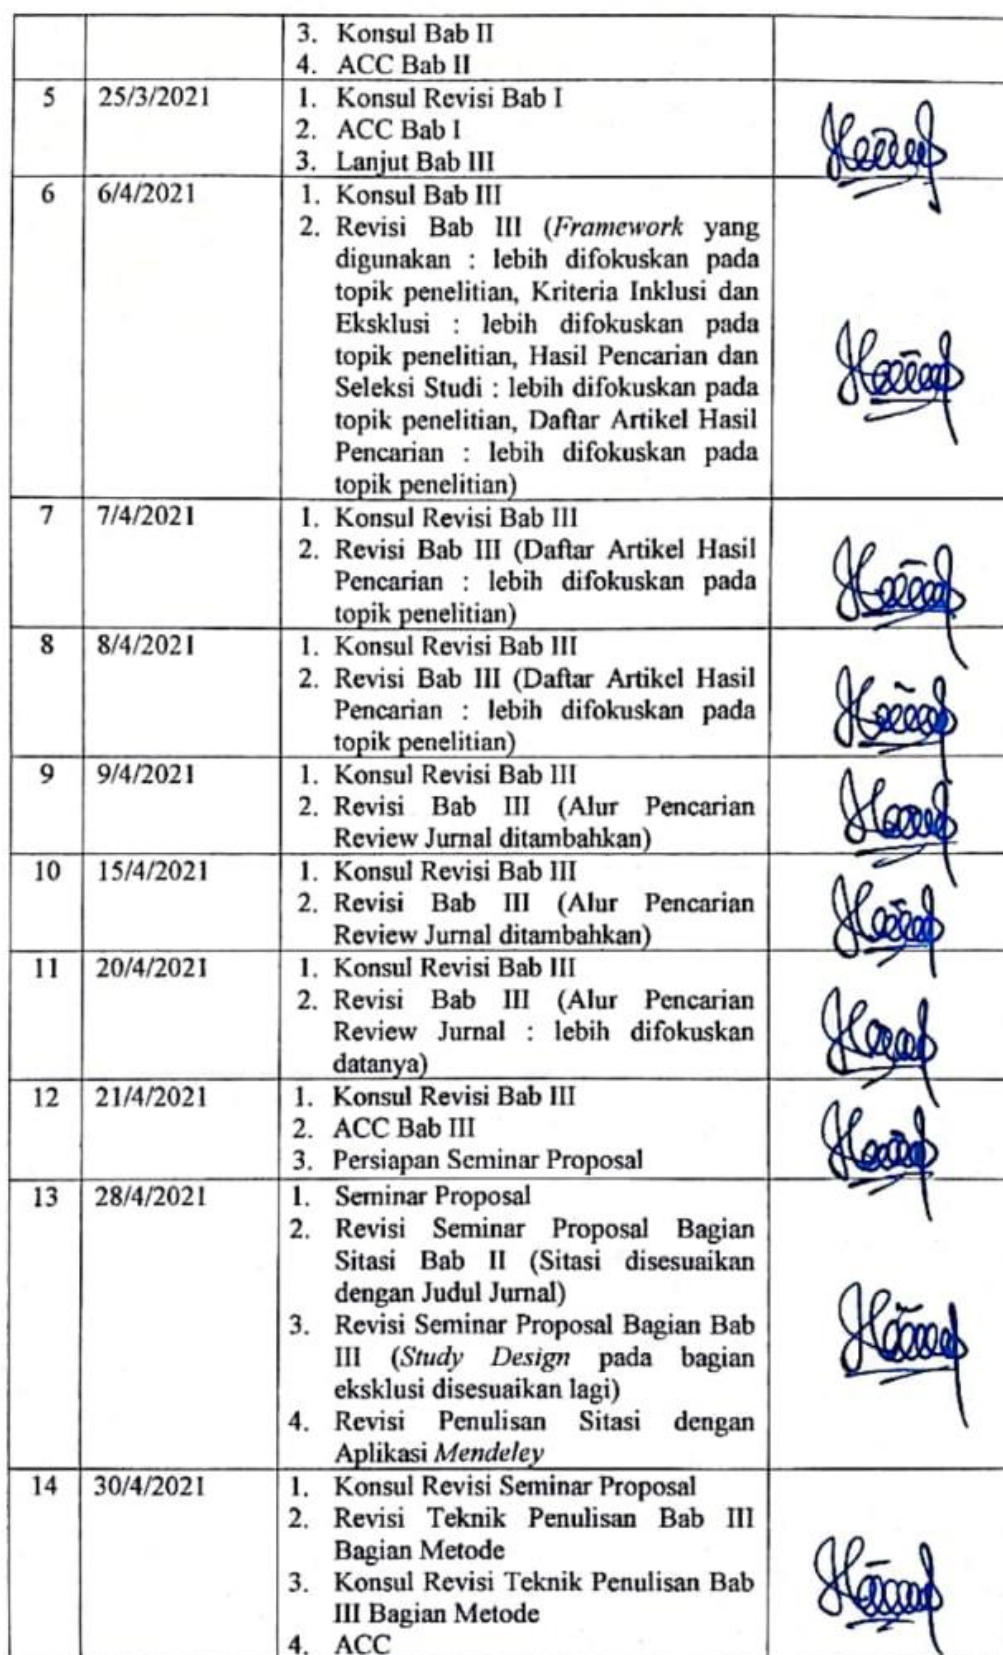 3. Konsul Bab II
4. ACC Bab II
5 25/3/2021 1. Konsul Revisi Bab I
2. ACC Bab I
3. Lanjut Bab III
6 6/4/2021 1. Konsul Bab III
2. Revisi Bab III (Framework yang
digunakan : lebih difokuskan pada
topik penelitian, Kriteria Inklusi dan
Eksklusi : lebih difokuskan pada
topik penelitian, Hasil Pencarian dan
Seleksi Studi : lebih difokuskan pada
topik penelitian, Daftar Artikel Hasil
Pencarian : lebih difokuskan pada
topik penelitian)
7 7/4/2021 1. Konsul Revisi Bab III
2. Revisi Bab III (Daftar Artikel Hasil
Pencarian : lebih difokuskan pada
topik penelitian)
8 8/4/2021 1. Konsul Revisi Bab III
2. Revisi Bab III (Daftar Artikel Hasil
Pencarian : lebih difokuskan pada
topik penelitian)
9 9/4/2021 1. Konsul Revisi Bab III
2. Revisi Bab III (Alur Pencarian
Review Jurnal ditambahkan)
10 15/4/2021 1. Konsul Revisi Bab III
2. Revisi Bab III (Alur Pencarian
Review Jurnal ditambahkan)
11 20/4/2021 1. Konsul Revisi Bab III
2. Revisi Bab III (Alur Pencarian
Review Jurnal : lebih difokuskan
datanya)
12 21/4/2021 1. Konsul Revisi Bab III
2. ACC Bab III
3. Persiapan Seminar Proposal
13 28/4/2021 1. Seminar Proposal
2. Revisi Seminar Proposal Bagian
Sitasi Bab II (Sitasi disesuaikan
dengan Judul Jurnal)
3. Revisi Seminar Proposal Bagian Bab
III (Study Design pada bagian
eksklusi disesuaikan lagi)
4. Revisi Penulisan Sitasi dengan
Aplikasi Mendeley
14 30/4/2021 1. Konsul Revisi Seminar Proposal
2. Revisi Teknik Penulisan Bab III
Bagian Metode
3. Konsul Revisi Teknik Penulisan Bab
III Bagian Metode
4. ACC